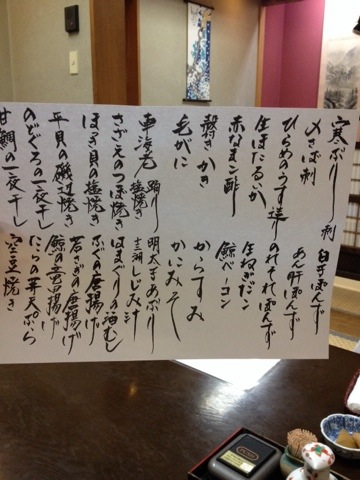 寒ぶり刺
〆さば刺
ひらめのうす造り
生ほたるいか
赤なまこ酢
かき
毛がに
車海老 踊り 塩焼き
さざえのつぼ焼き
ほっき貝の塩焼き
平貝の磯辺焼き
のどぐろの一夜干し
甘鯛の一夜干し
白子ぽんず
あん肝ぽんず
のれそれぽんず
鯨ベーコン
からすみ
かにみそ
明太子あぶり
十三湖しじみ汁
はまぐりの酒むし
ふぐの唐揚げ
若さぎの唐揚げ
鯨の竜田揚げ
たらの芽天ぷら
空豆焼き